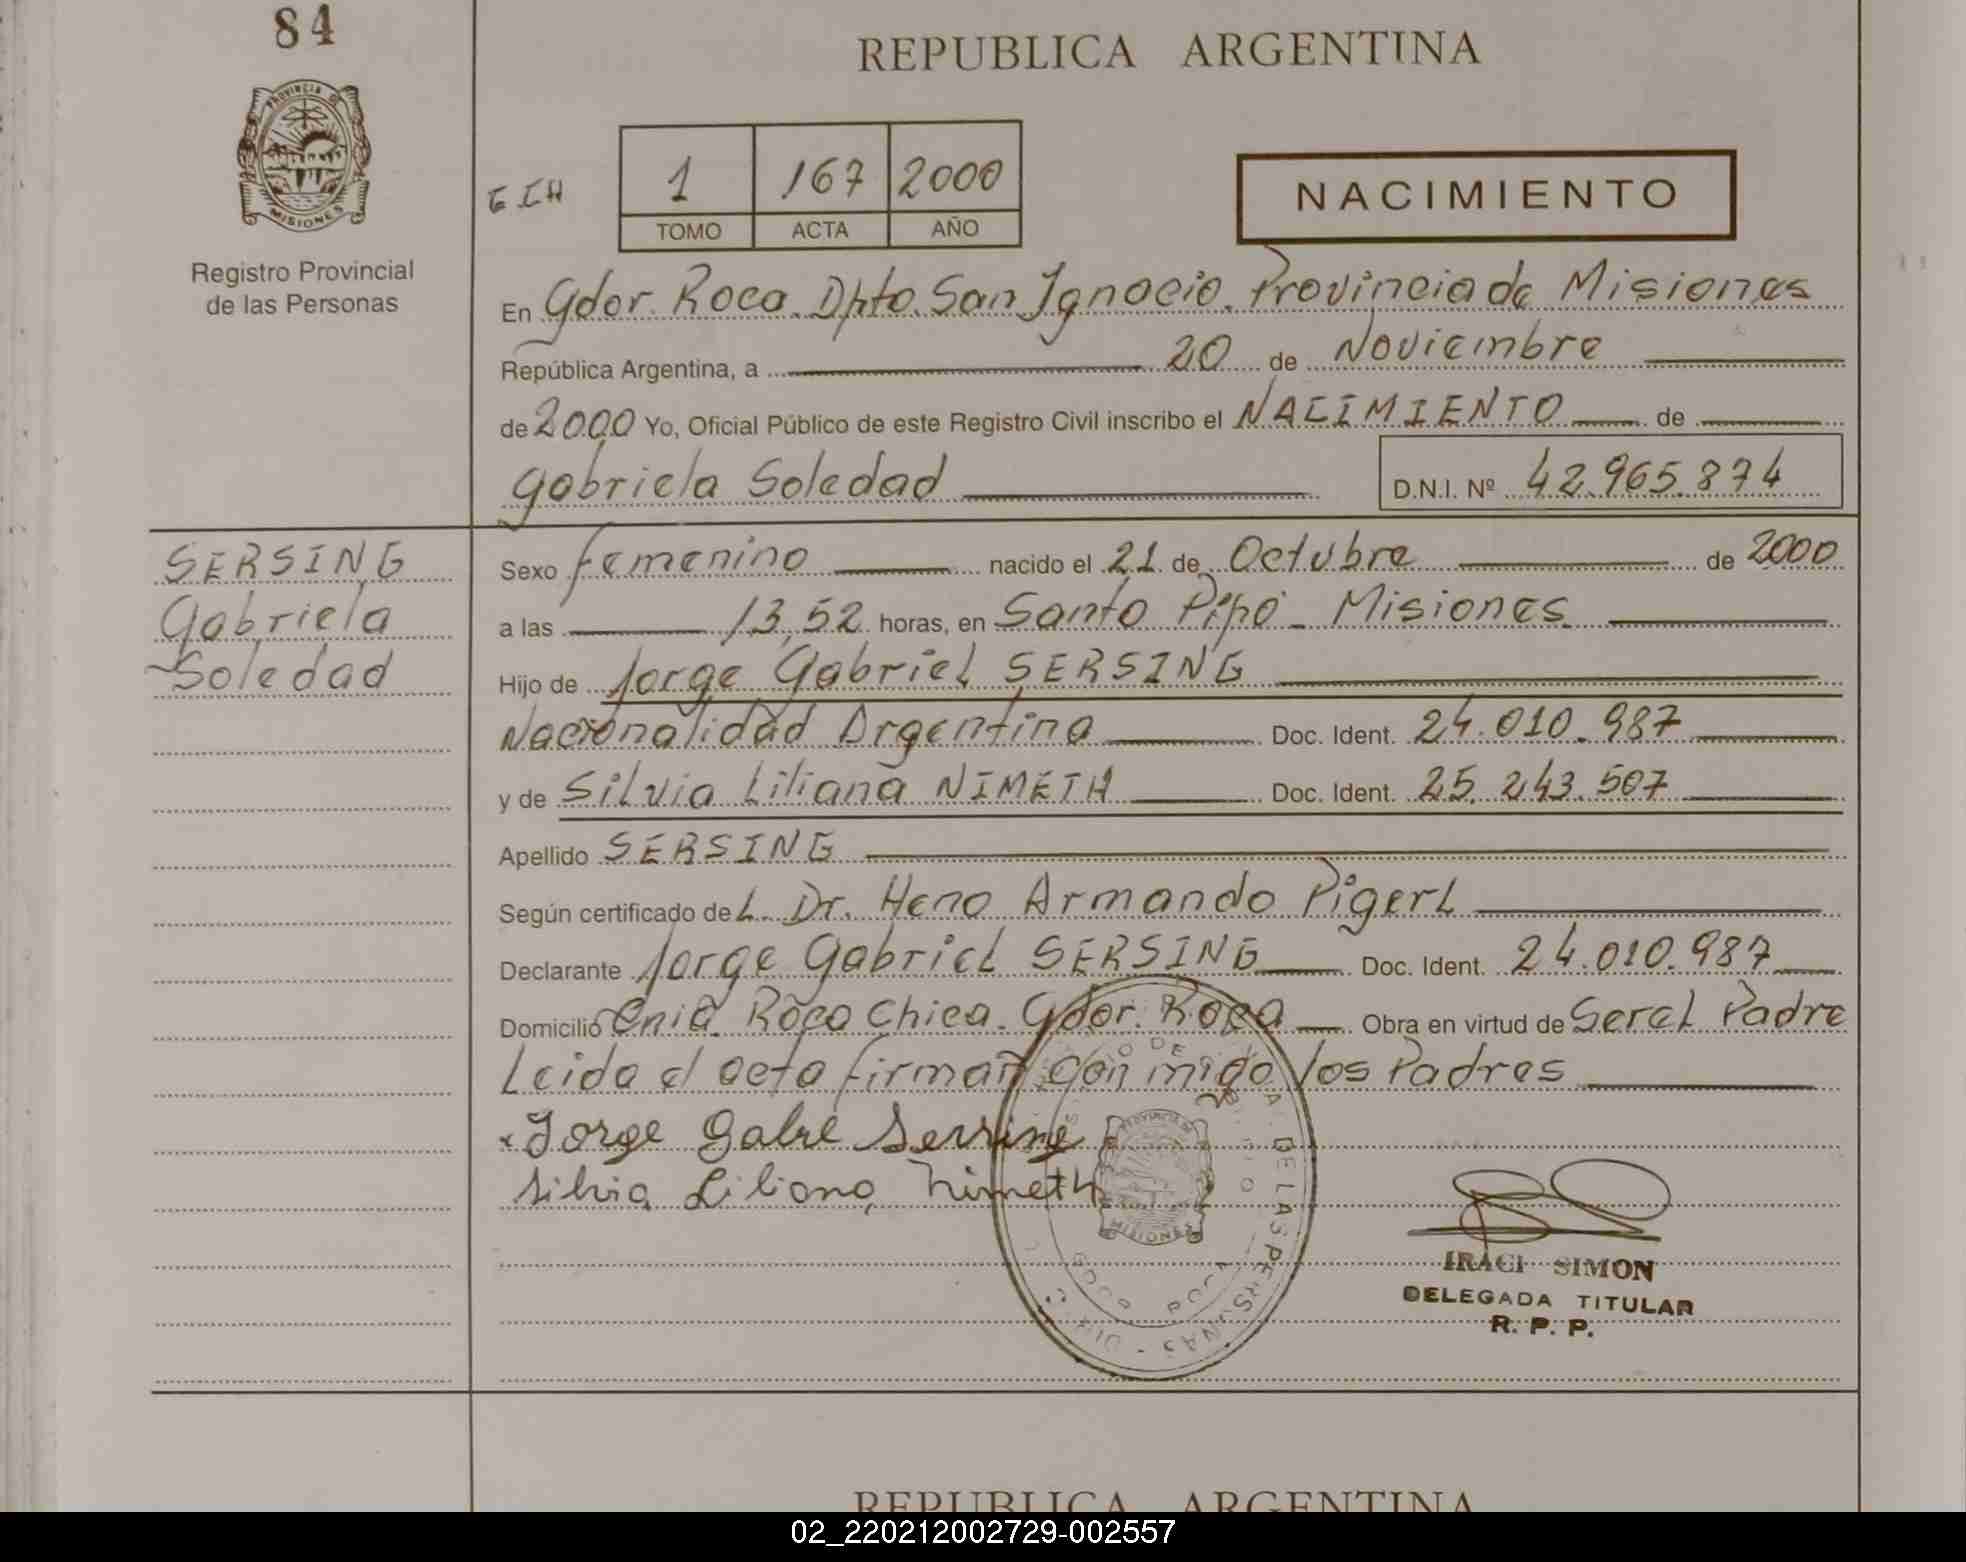 84
REPUBLICA ARGENTINA
PROVINCIA DE
MISIONES
Registro Provincial
de las Personas
1 167 2000
TOMO ACTA AÑO
NACIMIENTO
En Gdor. Roca. Dpto. San Ignacio. Provincia de Misiones
República Argentina, a 20 de Noviembre
de 2000 Yo, Oficial Público de este Registro Civil inscribo el NACIMIENTO de
Gabriela Soledad D.N.I. Nº 42.965.874
SERSING
Gabriela
Soledad
Sexo femenino nacido el 21 de Octubre de 2000
a las 13,52 horas, en Santo Pipó - Misiones
Hijo de Jorge Gabriel SERSING
Nacionalidad Argentina Doc. Ident. 24.010.987
y de Silvia Liliana NIMETH Doc. Ident. 25.243.507
Apellido SERSING
Según certificado del Dr. Heno Armando Pigerl
Declarante Jorge Gabriel SERSING Doc. Ident. 24.010.987
Domicilio Cnia. Roca Chica. Gdor. Roca Obra en virtud de Ser el Padre
Leida el acta firman con migo los Padres
Jorge Gabrel Sersing
Silvia Liliana Nimeth
MISIONES
DE LAS PERSONAS
IRACI SIMON
DELEGADA TITULAR
R. P. P.
REPUBLICA ARGENTINA
02_220212002729-002557